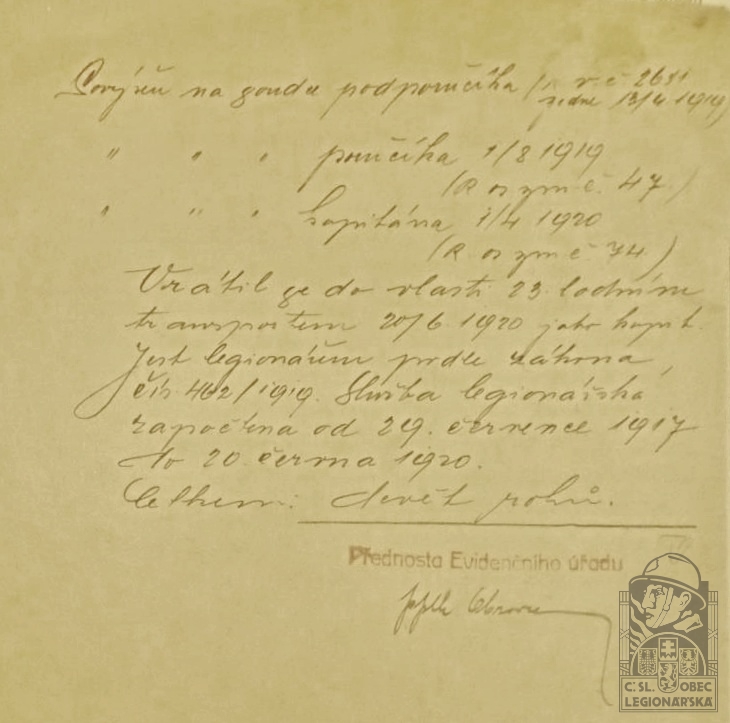 Povýšen na gouda podporučíka (r. v. č. 2681
ze dne 13/4 1919)
" " " poručíka 1/8 1919
(R os zm č. 47.)
" " " kapitána 1/4 1920
(R. os zm č 74.)
Vrátil se do vlasti 23. lodním
transportem 20/6. 1920 jako kapit.
Jest legionářem podle zákona
čís. 462/1919. Služba legionářská
započtena od 29. července 1917
do 20. června 1920.
Celkem: devět roků.
Přednosta Evidenčního úřadu
Č:SL. OBEC
LEGIONÁŘSKÁ